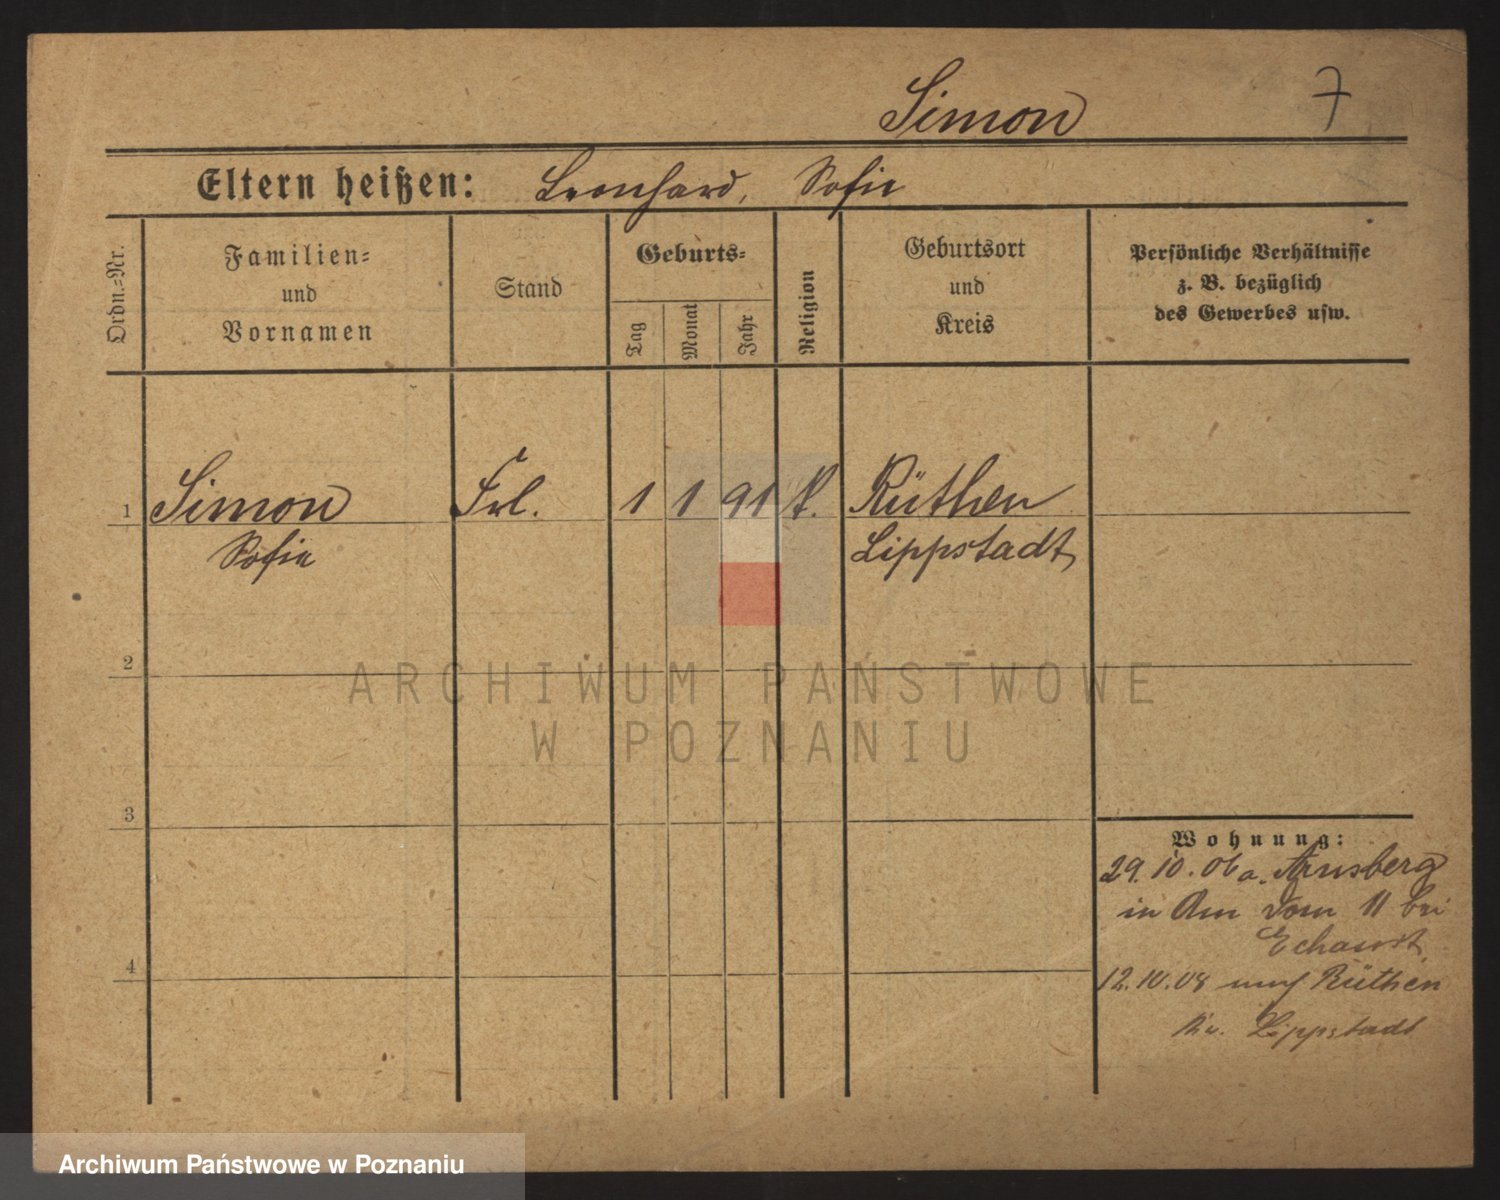 Simon 7
Eltern heißen: Leonhard, Sofie
Ordn.-Nr.
Familien-
und
Vornamen
Stand
Geburts-
Tag
Monat
Jahr
Religion
Geburtsort
und
Kreis
Persönliche Verhältnisse
z. B. bezüglich
des Gewerbes usw.
1 Simon Frl. 1 1 91 k. Rüthen
Sofie Lippstadt
2
ARCHIWUM PAŃSTWOWE
W POZNANIU
3
Wohnung:
29. 10. 06 a. Arnsberg
in Am vom 11 bei
4
12. 10. 08 nach Rüthen
Kr. Lippstadt
Archiwum Państwowe w Poznaniu